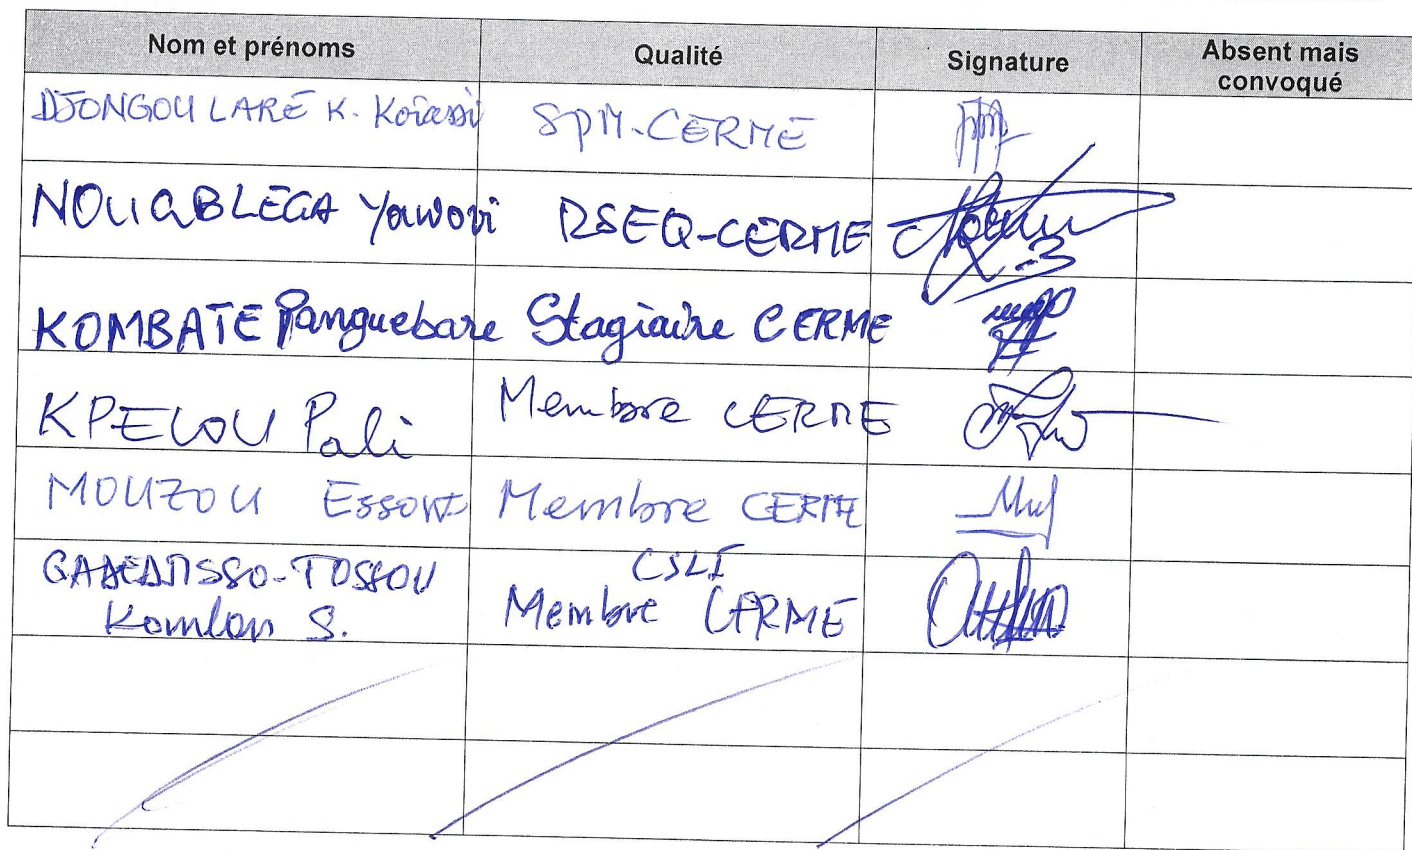 Nom et prénoms Qualité Signature Absent mais
convoqué
DJONGOU LARÉ K. SPM-CERME
NOUGBLEGA Yawovi RSEQ-CERME
KOMBATE Panguebare Stagiaire CERME
KPELOU Pali Membre CERME
MOUZOU Essowè Membre CERME
TOSSOU CSLI
Komlan S. Membre CERME